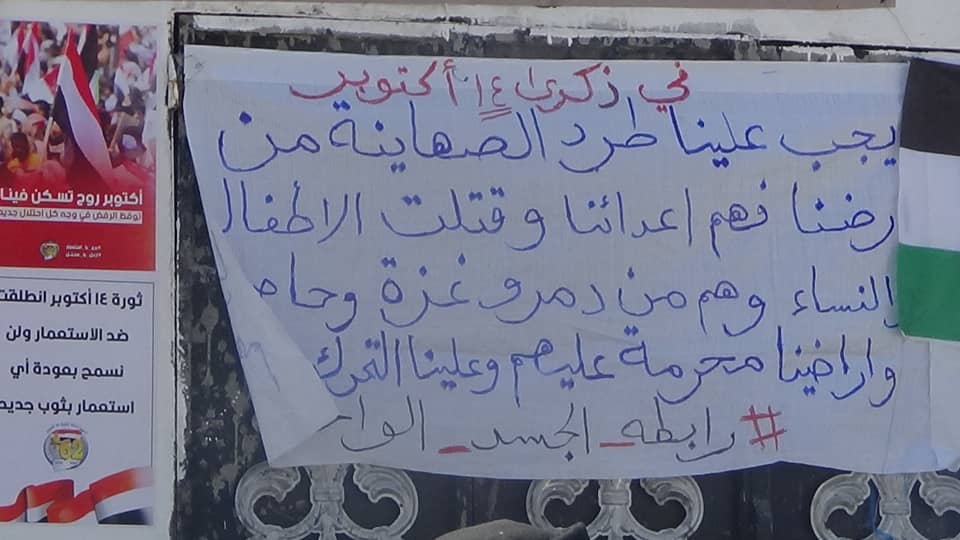 في ذكرى ١٤ أكتوبر
يجب علينا طرد الصهاينة من
رضنا فهم اعدائنا وقتلت الاطفال
النساء وهم من دمرو غزة وحاص
واراضينا محرمة عليهم وعلينا التحرك
#رابطه_الجسد_الوا
أكتوبر روح تسكن فينا
توقظ الرفض في وجه كل احتلال جديد
ثورة ١٤ أكتوبر انطلقت
ضد الاستعمار ولن
نسمح بعودة أي
استعمار بثوب جديد
62